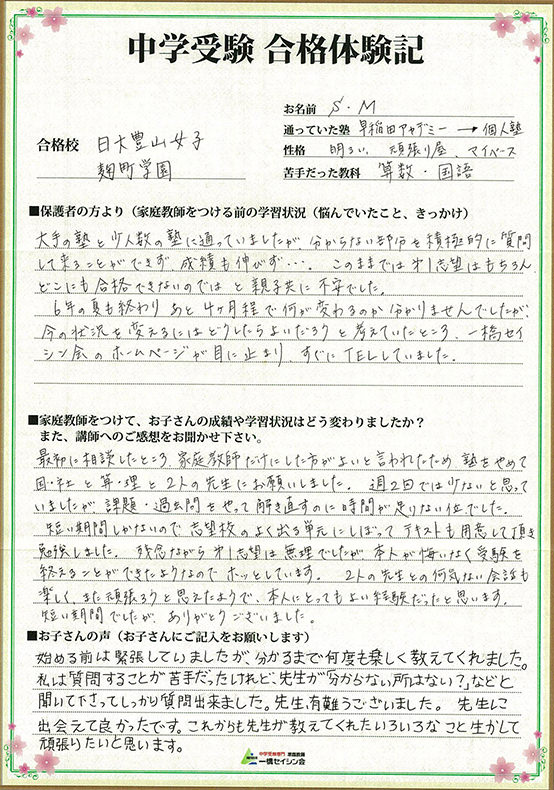 中学受験 合格体験記
お名前 S・M
通っていた塾 早稲田アカデミー → 個人塾
合格校 日大豊山女子
性格 明るい、頑張り屋、マイペース
麹町学園
苦手だった教科 算数・国語
■保護者の方より（家庭教師をつける前の学習状況（悩んでいたこと、きっかけ）
大手の塾と少人数の塾に通っていましたが、分からない部分を積極的に質問
して来ることができず、成績も伸びず…。このままでは第1志望はもちろん
どこにも合格できないのでは と親子共に不安でした。
6年の夏も終わり あと4ヶ月程で何が変わるのか分かりませんでしたが、
今の状況を変えるにはどうしたらよいだろうと考えていたところ、一橋セイ
シン会のホームページが目に止まり、すぐにTELしていました。
■家庭教師をつけて、お子さんの成績や学習状況はどう変わりましたか？
また、講師へのご感想をお聞かせ下さい。
最初に相談したところ、家庭教師だけにした方がよいと言われたため、塾をやめて
国・社と算・理と2人の先生にお願いしました。週2回では少ないと思って
いましたが、課題・過去問をやって解き直すのに時間が足りない位でした。
短い期間しかないので志望校のよく出る単元にしぼって テキストも用意して頂き
勉強しました。残念ながら第1志望は無理でしたが、本人が悔いなく受験を
終えることができたようなので ホッとしています。2人の先生との何気ない会話も
楽しく、また頑張ろうと思えたようで、本人にとってもよい経験だったと思います。
短い期間でしたが、ありがとうございました。
■お子さんの声（お子さんにご記入をお願いします）
始める前は緊張していましたが、分かるまで何度も楽しく教えてくれました。
私は質問することが苦手だったけれど、先生が「分からない所はない？」などと
聞いて下さってしっかり質問出来ました。先生、有難うございました。 先生に
出会えて良かったです。これからも先生が教えてくれたいろいろなこと生かして
頑張りたいと思います。
中学受験専門 家庭教師
一橋セイシン会